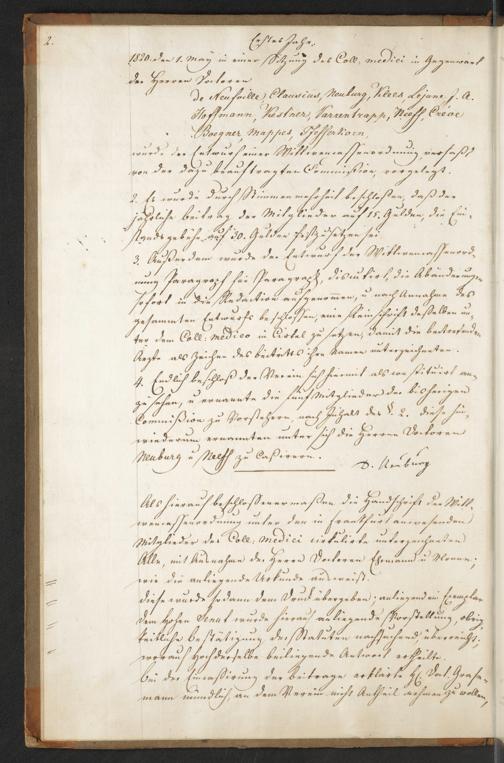 2.
Erstes Jahr.
1820. den 1. May in einer Sitzung des Coll. medici in Gegenwart
der Herren Doctoren
de Neufville, Clausius, Neuburg, Kloss, Lejeune, J. A.
Hoffmann, Kestner, Varrentrapp, Neeff, Crève
Boegner Mappes, Pfefferkorn,
wurde der Entwurf einer Wittwencassenordnung verfasst
von der dazu beauftragten Commission, vorgelegt.
2. Es wurde durch Stimmenmehrheit beschlossen, dass der
jährliche Beitrag der Mitglieder auf 15. Gulden, die Ein-
standsgebühr auf 30. Gulden festzusetzen sei.
3. Ausserdem wurde der Entwurf der Wittwencassenord-
nung Paragraph für Paragraph, discutirt, die Abänderungen
sofort in die Redaction aufgenommen, u nach Annahme des
gesammten Entwurfs beschlossen, eine Reinschrift desselben un-
ter dem Coll: medico in Cirkel zu setzen, damit die beitretenden
Ärzte als Zeichen des Beitritts ihre Namen unterzeichneten.
4. Endlich beschloss der Verein sich hiermit als constituirt an-
zusehen, u ernannte die fünf Mitglieder der bisherigen
Commission zu Vorstehern nach Inhalt des §. 2. diese hin-
wiederum ernannten unter sich die Herren Doctoren
Neuburg u Neeff zu Cassirern.
D. Neuburg
Als hierauf beschlossenermassen die Handschrift der Witt-
wencassenordnung unter den in Frankfurt anwesenden
Mitglieder des Coll. medici cirkulirte unterzeichneten
Alle, mit Ausnahme der Herren Doctoren Ehrmann u
wie die anliegende Urkunde ausweist.
Diese wurde sodann dem Druck übergeben; anliegend ein Exemplar
Dem Hohen Senat wurde hierauf anliegende Vorstellung, obrig-
keitliche Bestätigung der Statuten nachsuchend überreicht,
worauf Hochderselbe beiliegende Antwort ertheilte.
Bei der Einkassirung der Beiträge erklärte H. Doct. Grase-
mann mündlich an dem Verein nicht Antheil nehmen zu wollen,